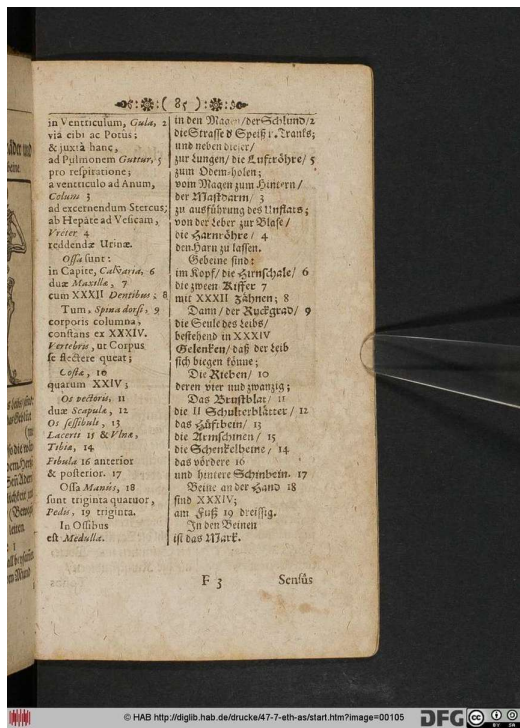 ( 85 )
in Ventriculum, Gula, 2
viâ cibi ac Potûs;
& juxtà hanc,
ad Pulmonem Guttur, 5
pro respiratione;
a ventriculo ad Anum,
Colum 3
ad excernendum Stercus;
ab Hepate ad Vesicam,
Vreter 4
reddendæ Urinæ.
Ossa sunt:
in Capite, Calvaria, 6
duæ Maxillæ, 7
cum XXXII Dentibus; 8
Tum, Spina dorsi, 9
corporis columna,
constans ex XXXIV.
Vertebris, ut Corpus
se flectere queat;
Costæ, 10
quarum XXIV;
Os pectoris, 11
duæ Scapulæ, 12
Os sessibuli, 13
Lacerti 15 & Vlnæ,
Tibiæ, 14
Fibula 16 anterior
& posterior. 17
Ossa Manûs, 18
sunt triginta quatuor,
Pedis, 19 triginta.
In Ossibus
est Medulla.
in den Magen/der Schlund/2
die Strasse d Speiß v. Tranks;
und neben dieser/
zur Lungen/ die Luftröhre/ 5
zum Odem-holen;
vom Magen zum Hintern/
der Mastdarm/ 3
zu ausführung des Unflats;
von der Leber zur Blase/
die Harnröhre/ 4
den Harn zu lassen.
Gebeine sind:
im Kopf/ die Hirnschale/ 6
die zween Kiffer 7
mit XXXII Zähnen; 8
Dann/ der Ruckgrad/ 9
die Seule des Leibs/
bestehend in XXXIV
Gelenken/ daß der Leib
sich biegen könne;
Die Rieben/ 10
deren vier und zwanzig;
Das Brustblat/ 11
die II Schulterblätter/ 12
das Hüftbein/ 13
die Armschinen/ 15
die Schenkelbeine/ 14
das vördere 16
und hintere Schinbein. 17
Beine an der Hand 18
sind XXXIV;
am Fuß 19 dreissig.
In den Beinen
ist das Mark.
F 3 Sensûs
© HAB http://diglib.hab.de/drucke/47-7-eth-as/start.htm?image=00105 DFG CC BY SA